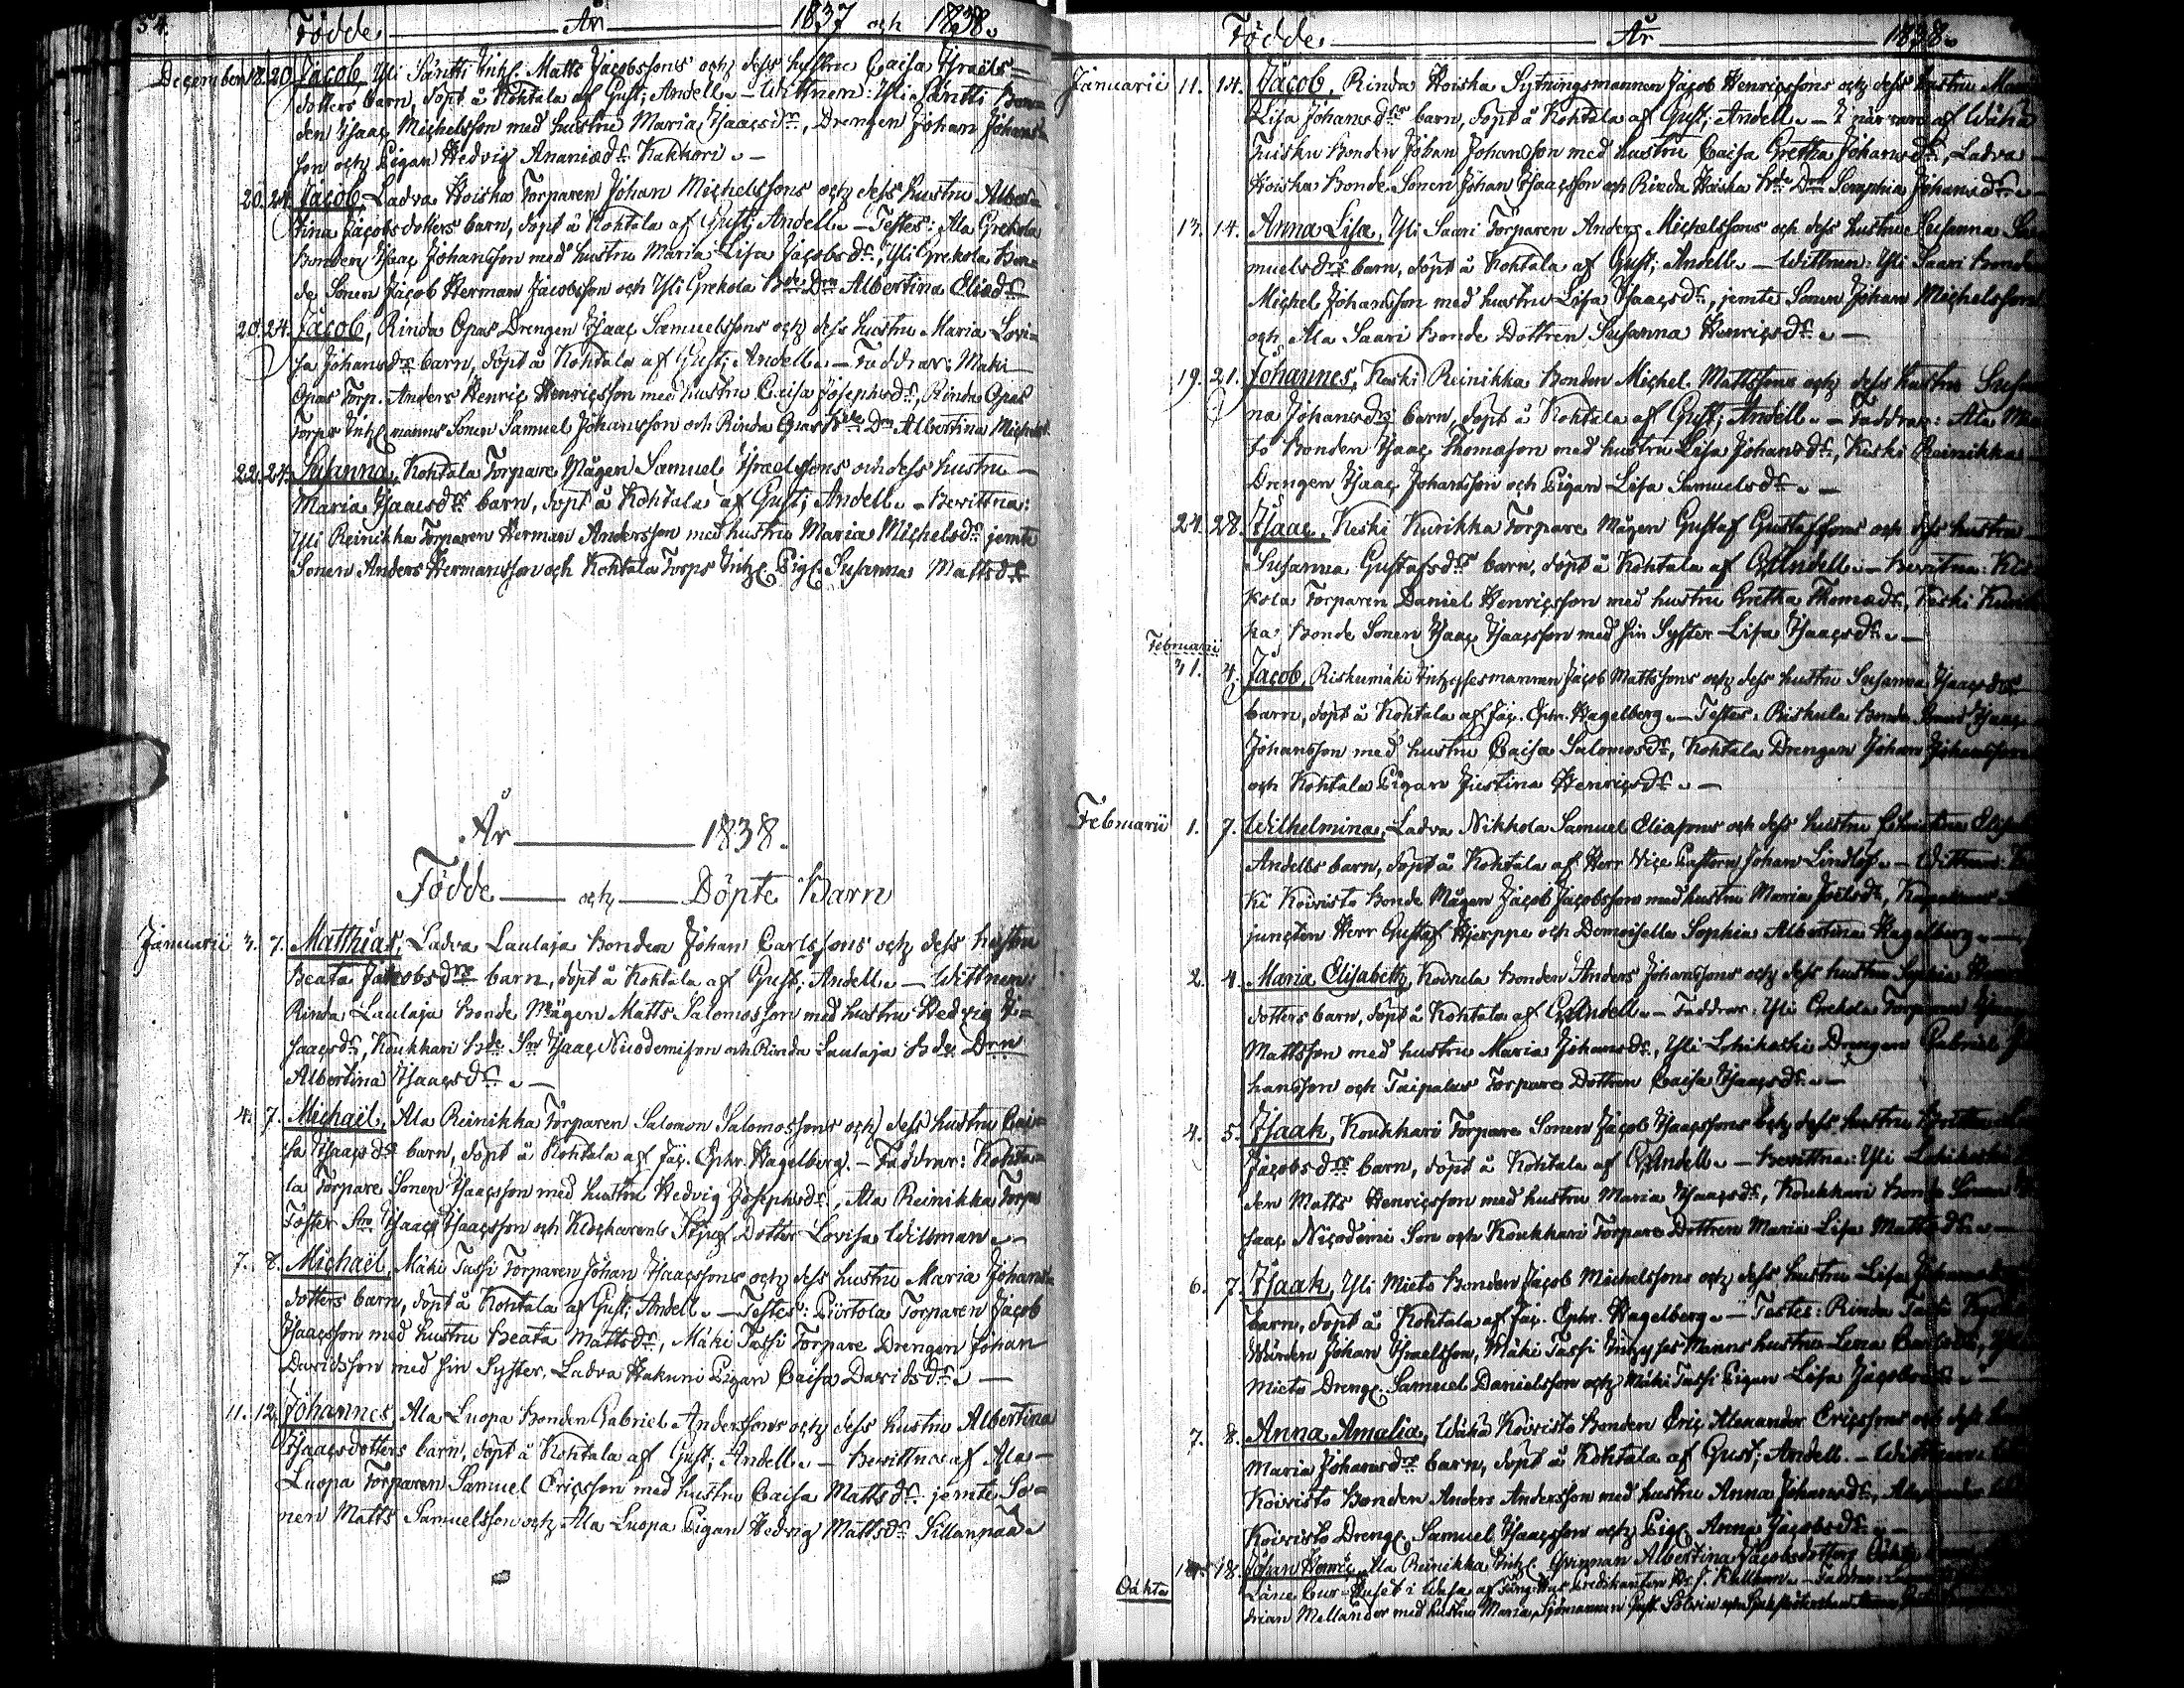 54. Födde År 1837 och 1838.
December 18. 20. Jacob, Yli Säntti Inhs. Matts Jacobssons och dess hustru Caisa Israëls=
dotters barn, döpt å Kohtala af Gust: Andell. — Wittnen: Yli Säntti Bon=
den Isaac Michelsson med hustru Maria Isaacsdr, Drengen Johan Johans=
son och Pigan Hedvig Ananiædr. Kakkori. —
20. 24. Jacob, Ladva Hoiska Torparen Johan Michelssons och dess hustru Alber=
tina Jacobsdotters barn, döpt å Kohtala af Gust; Andell. — Testes: Ala Grekola
Bonden Isaac Johansson med hustru Maria Lisa Jacobsdr, Yli Grekola Bon=
de Sonen Jacob Herman Jacobsson och Yli Grekola Bde Drn Albertina Eliædr
20. 24. Jacob, Rinda Opas Drengen Isaac Samuelssons och dess hustru Maria Lovi=
sa Johansdrs barn, döpt å Kohtala af Gust; Andell. — Faddrar: Mäki
Opas Torp. Anders Henric Henricsson med hustru Caisa Josephsdr, Rinda Opas
Torps Inhs. manns Sonen Samuel Johansson och Rinda Opas Bde Dn Albertina Michelsdr
22. 24. Susanna, Kohtala Torpare Mågen Samuel Israelssons och dess hustru
Maria Isaacsdrs barn, döpt å Kohtala af Gust; Andell. – Bevittna:
Yli Reinikka Torparen Herman Andersson med hustru Maria Michelsdr jemte
Sonen Anders Hermansson och Kohtala Torps Inhs. Pig. Susanna Mattsdr
År 1838.
Födde och Döpte Barn
Januarii 3. 7. Matthias, Ladva Laulaja Bonden Johan Carlssons och dess hustru
Beata Jakobsdrs barn, döpt å Kohtala af Gust; Andell. — Wittnen:
Rinda Laulaja Bonde Mågen Matts Salomosson med hustru Hedvig I=
saacsdr, Koukkari Bde Sn Isaac Nicodemison och Rinda Laulaja Bde Drn
Albertina Isaacsdr. —
4. 7. Michaël, Ala Reinikka Torparen Salomon Salomossons och dess hustru Cai=
sa Isaacsdrs barn, döpt å Kohtala af Jac. Ephr. Hagelberg. – Faddrar: Kohta=
la Torpare Sonen Isaacsson med hustru Hedvig Josephsdr, Ala Reinikka Torps
Foster Sn Isaac Isaacsson och Klockarens Stjuf Dotter Lovisa Willman. –
7. 8. Michaël, Mäki Tassi Torparen Johan Isaacssons och dess hustru Maria Johans=
dotters barn, döpt å Kohtala af Gust; Andell. — Testes: Piirtola Torparen Jacob
Isaacsson med hustru Beata Mattsdr, Mäki Tassi Torpare Drengen Johan
Davidsson med sin Syster, Ladva Hakuni Pigan Caisa Davidsdr. —
11. 12. Johannes, Ala Luopa Bonden Gabriel Anderssons och dess hustru Albertina
Isaacsdotters barn, döpt å Kohtala af Gust; Andell. — Bevittnas af Ala –
Luopa Torparen Samuel Ericsson med hustru Caisa Mattsdr. jemte So=
nen Matts Samuelsson och Ala Luopa Pigan Hedvig Mattsdr Sillanpää.
Födde År 1838.
Januarii 11. 14. Jacob, Rinda Hoiska Sytningsmannen Jacob Henricssons och dess hustru
Lisa Johansdrs barn, döpt å Kohtala af Gust; Andell. — I närvaro af Wähä
Juisku Bonden Johan Johansson med hustru Caisa Gretha Johansdr, Ladva
Hoiska Bonde Sonen Johan Isaacsson och Rinda Hoiska Bde Drn Seraphia Johansdr. —
13. 14. Anna Lisa, Yli Saari Torparen Anders Michelssons och dess hustru Susanna Sa
muelsdrs barn, döpt å Kohtala af Gust; Andell. — Wittnen: Yli Saari Bonden
Michel Johansson med hustru Lisa Isaacsdr, jemte Sonen Johan Michelsson
och Ala Saari Bonde Dottren Susanna Henricsdr. —
19. 21. Johannes, Keski Reinikka Bonden Michel Mattssons och dess hustru Susan
na Johansdrs barn, döpt å Kohtala af Gust; Andell. — Faddrar: Ala
to Bonden Isaac Thomason med hustru Lisa Johansdr, Keski Reinikka
Drengen Isaac Johansson och Pigan Lisa Samuelsdr. —
24. 28. Isaac, Keski Kurikka Torpare Mågen Gustaf Gustafssons och dess hustru
Susanna Gustafsdrs barn, döpt å Kohtala af G. Andell. — Bevittna:
kola Torparen Daniel Henricsson med hustru Gretha Thomædr, Keski Kurik
ka Bonde Sonen Isaac Isaacsson med sin Syster Lisa Isaacsdr. —
Februarii
31. 4. Jacob, Riskumäki Inhysesmannen Jacob Mattssons och dess hustru Susanna Isaacsdrs
barn, döpt å Kohtala af Jac. Ephr. Hagelberg. — Testes: Riskula Bonde Isaac
Johansson med hustru Caisa Salomosdr, Kohtala Drengen Johan Johansson
och Kohtala Pigan Justina Henricsdr. —
Februarii 1. 7. Wilhelmina, Ladva Nikkola Samuel Eliasons och dess hustru Christina
Andells barn, döpt å Kohtala af Herr Vice Pastorn Johan Lindlöf. —
ki Koivisto Bonde Mågen Jacob Jacobsson med hustru Maria Joëlsdr,
juncten Herr Gustaf Hjerppe och Demoiselle Sophia Albertina Hagelberg. —
2. 4. Maria Elisabeth, Koivula Bonden Anders Johanssons och dess hustru
dotters barn, döpt å Kohtala af G. Andell. — Faddrar: Yli Grekola Torparen
Mattsson med hustru Maria Johansdr, Yli Lehikoski Drengen Gabriel Jo
hansson och Taipalus Torpare Dottren Caisa Isaacsdr. —
4. 5. Isaak, Koukkari Torpare Sonen Jacob Isaacssons och dess hustru
Jacobsdrs barn, döpt å Kohtala af G. Andell. — Bevittna: Yli
den Matts Henricsson med hustru Maria Isaacsdr, Koukkari Bonde Sonen
saac Nicodemi Son och Koukkari Torpare Dottren Maria Lisa Mattsdr. —
6. 7. Isaak, Yli Mieto Bonden Jacob Michelssons och dess hustru Lisa
barn, döpt å Kohtala af Jac. Ephr. Hagelberg. — Testes: Rinda Tassi
Wärden Johan Israelsson, Mäki Tassi Inhyses Manns hustru Lena
Mieto Dreng. Samuel Danielsson och Mäki Tassi Pigan Lisa Jacobsdr. —
7. 8. Anna Amalia, Wähä Koivisto Bonden Eric Alexander Ericssons och dess
Maria Johansdrs barn, döpt å Kohtala af Gust; Andell. –
Koivisto Bonden Anders Andersson med hustru Anna Johansdr,
Koivisto Dreng. Samuel Isaacsson och Pig. Anna Jacobsdr. —
Oäkta 18. Johan Henric, Ala Reinikka Inhs. Qvinnan Albertina Jacobsdotters
Läne Cur-Huset i Wasa af
drian Mellander med hustru Maria, Sjömannen